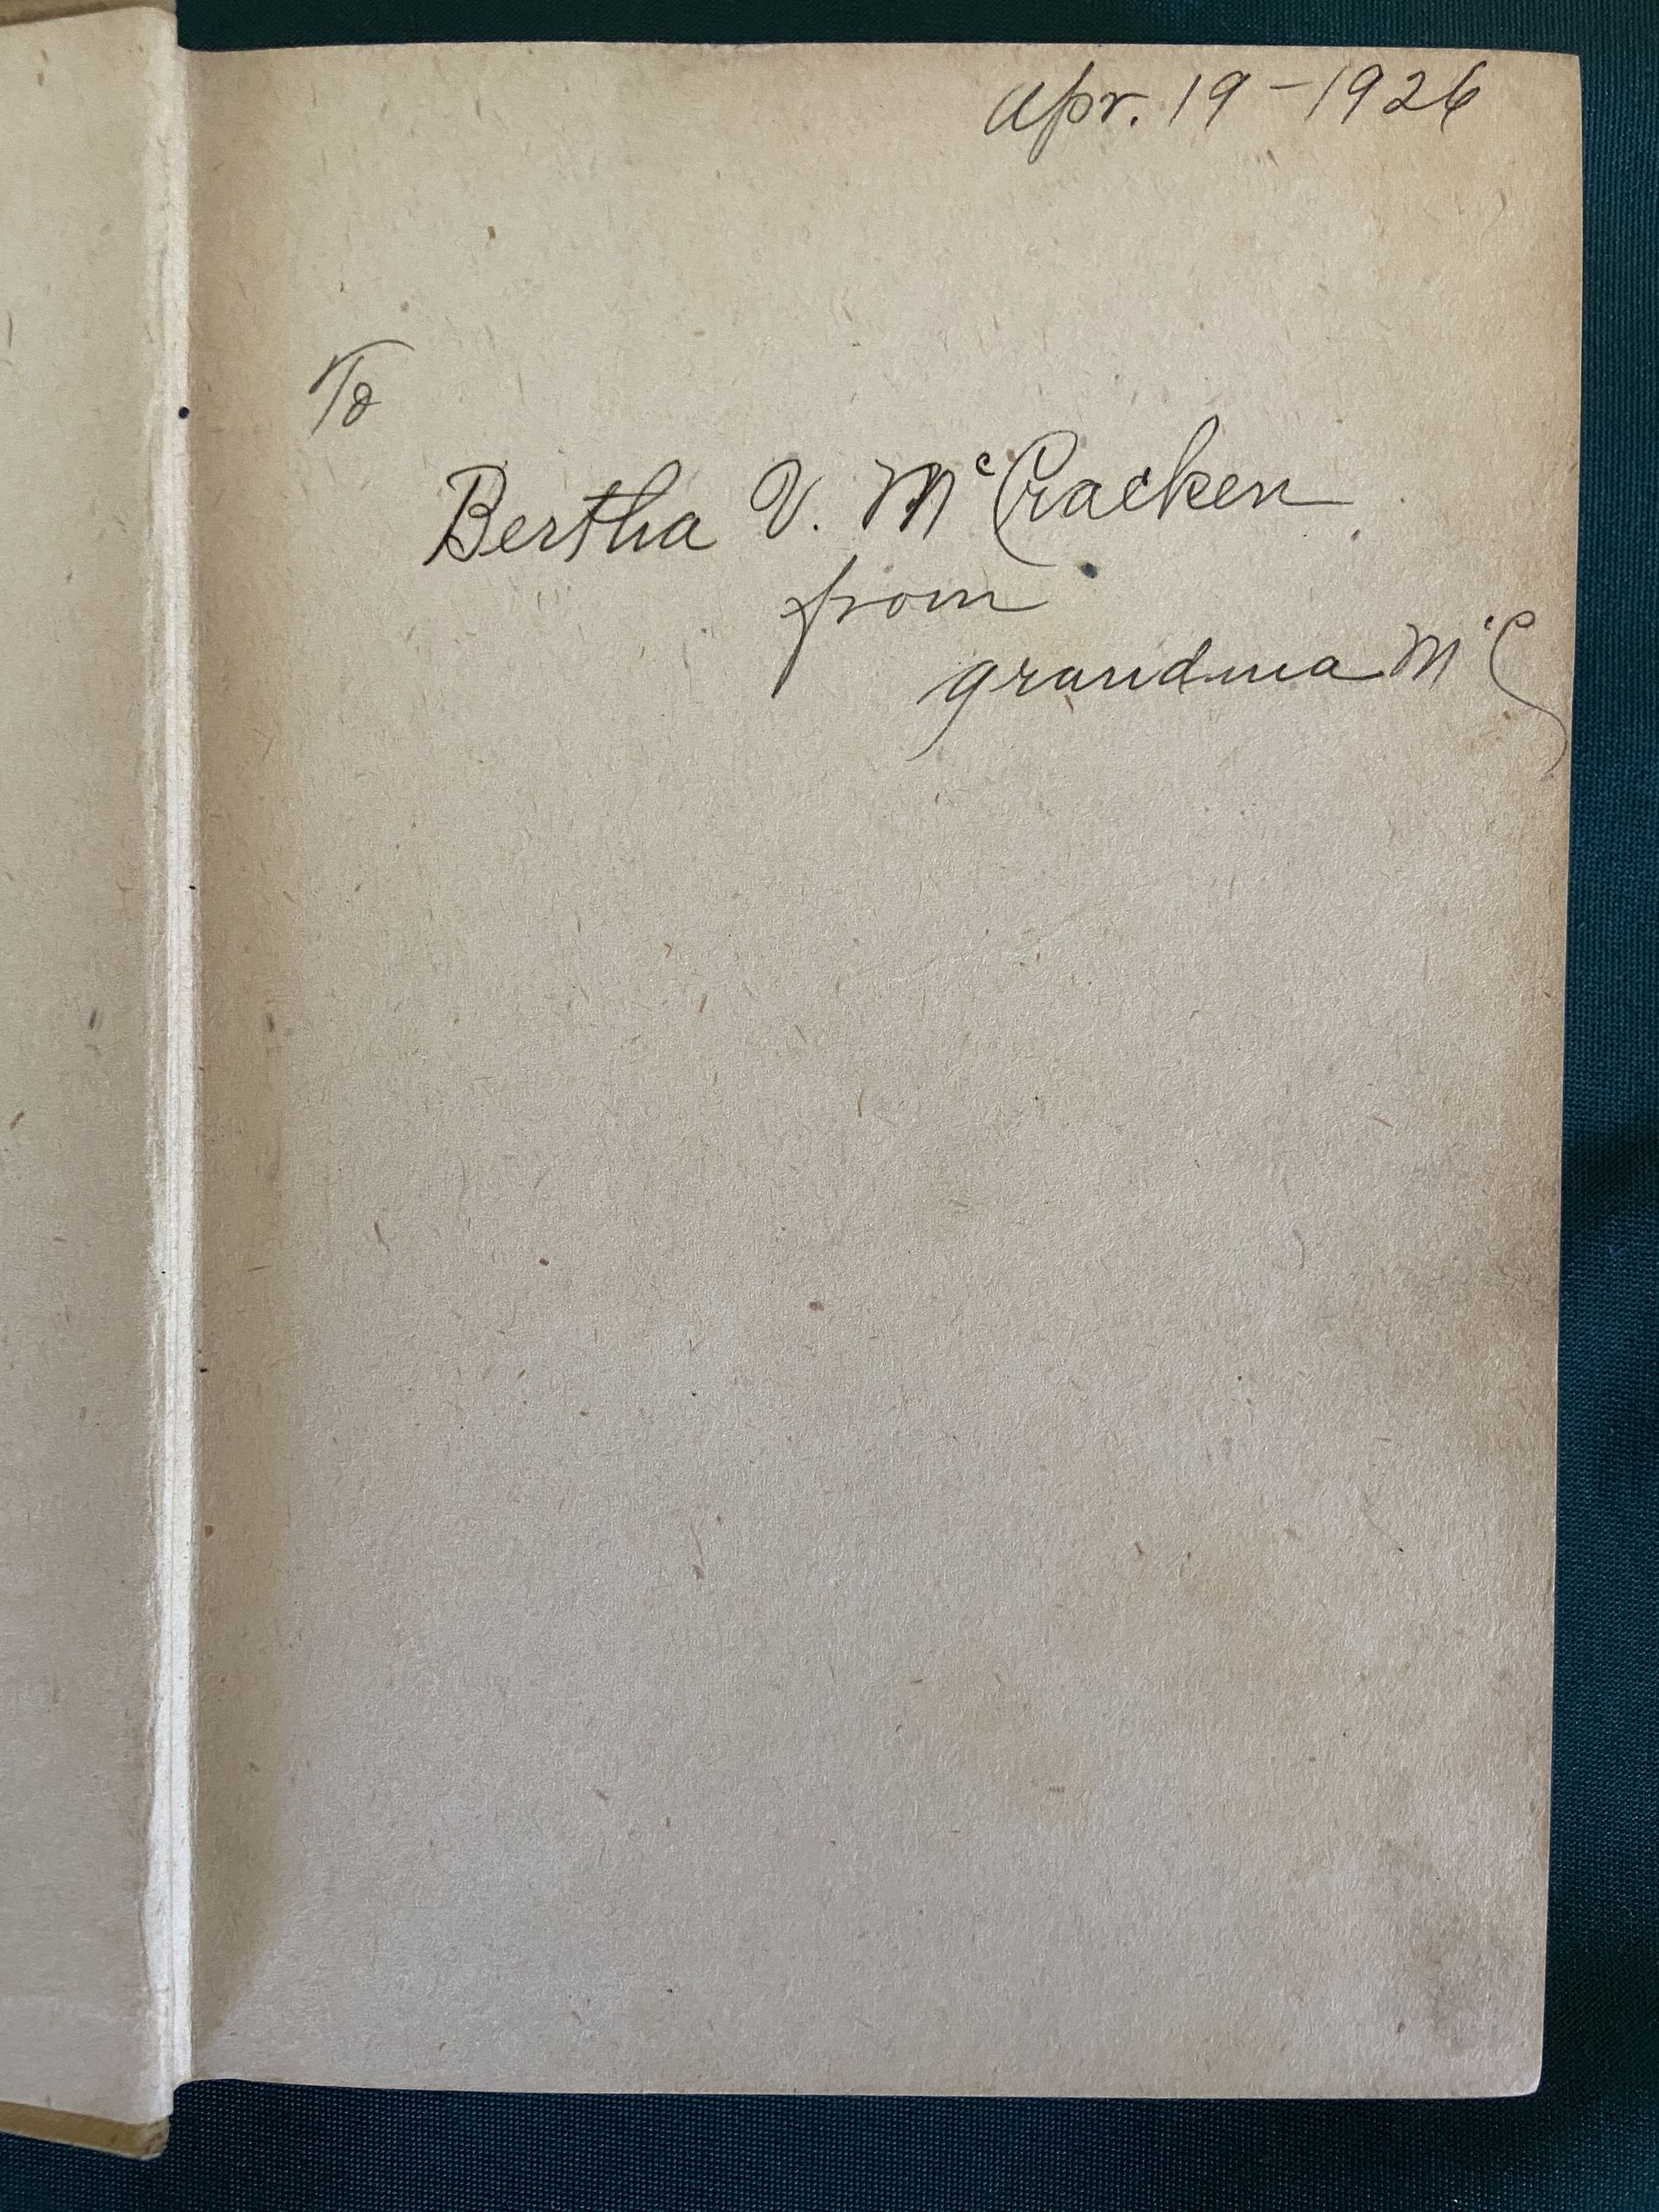 Apr. 19-1926
To
Bertha V. McCracken
from
grandma McC